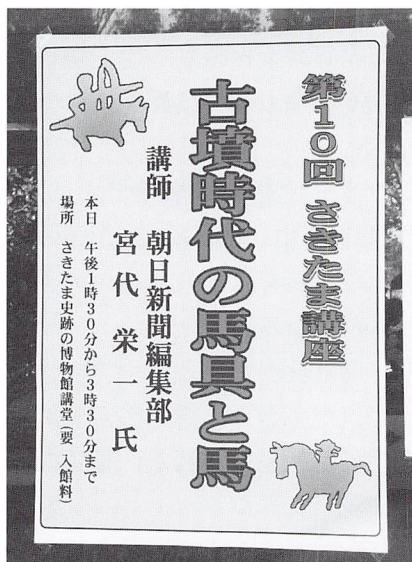 第10回 さきたま講座
古墳時代の馬具と馬
講師 朝日新聞編集部
宮代 栄一 氏
本日 午後1時30分から3時30分まで
場所 さきたま史跡の博物館講堂(要 入館料)